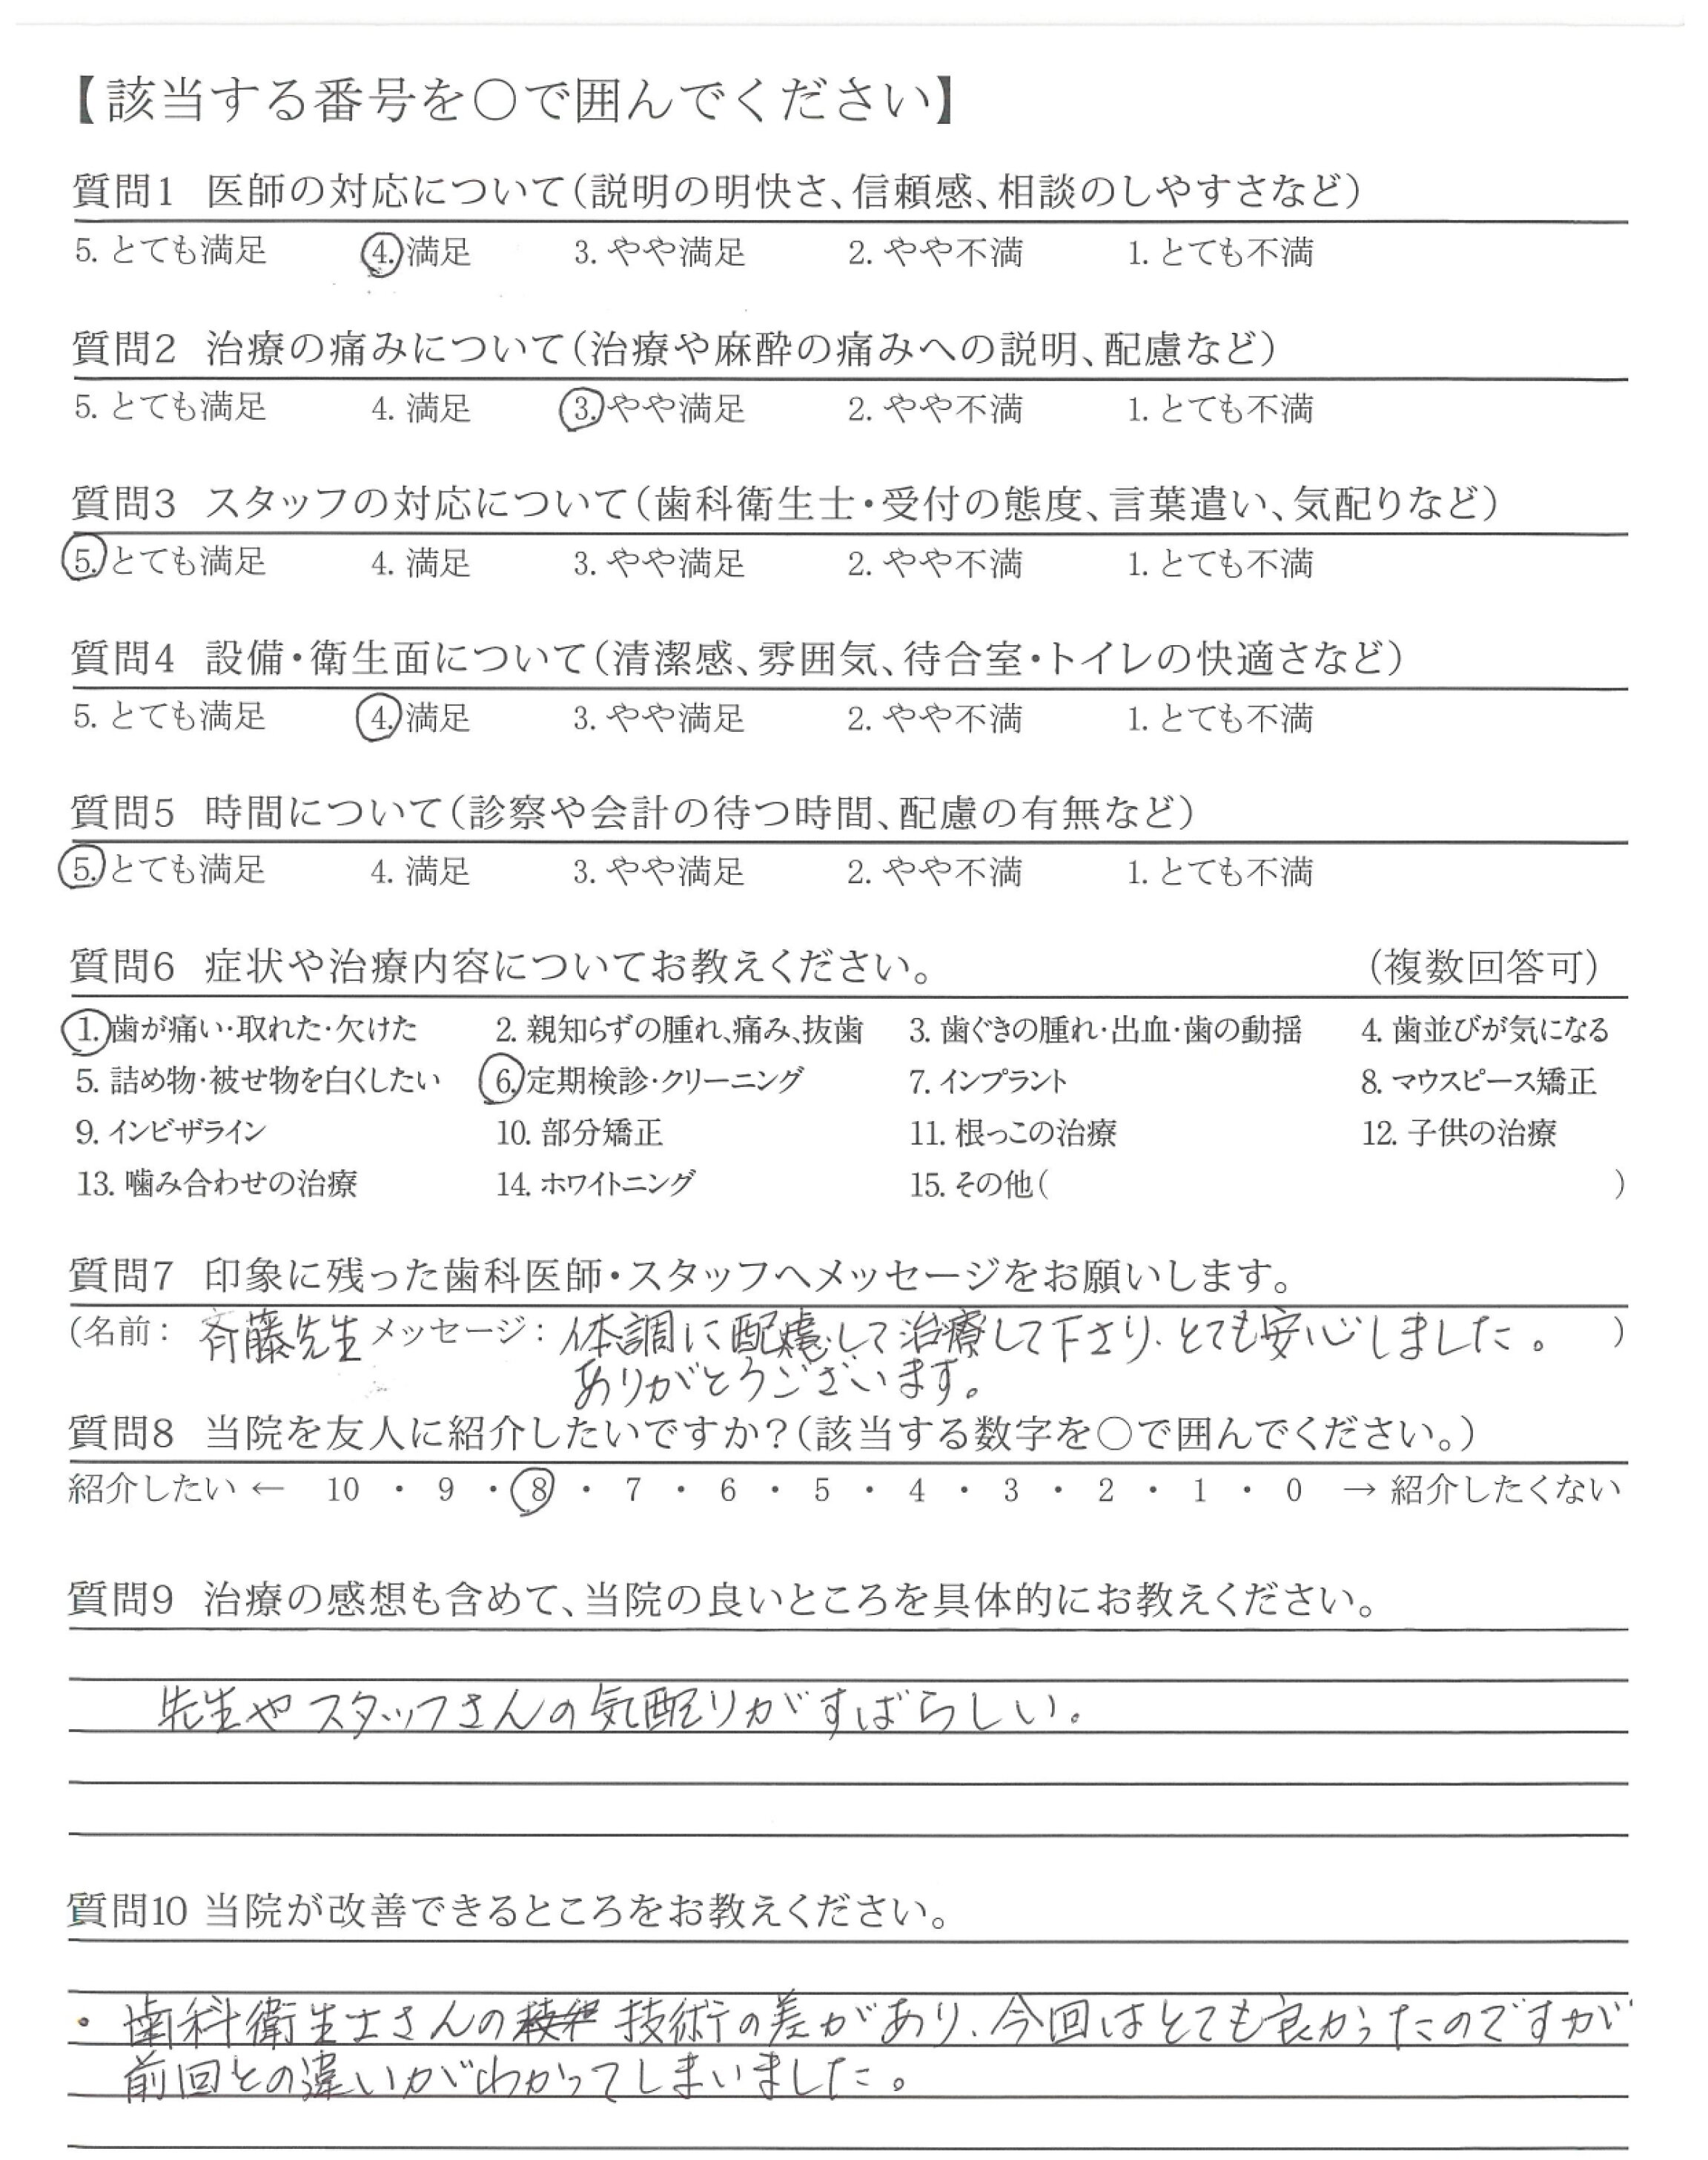 【該当する番号を○で囲んでください】
質問1 医師の対応について(説明の明快さ、信頼感、相談のしやすさなど)
5. とても満足 4. 満足 3. やや満足 2. やや不満 1. とても不満
質問2 治療の痛みについて(治療や麻酔の痛みへの説明、配慮など)
5. とても満足 4. 満足 3. やや満足 2. やや不満 1. とても不満
質問3 スタッフの対応について(歯科衛生士・受付の態度、言葉遣い、気配りなど)
5. とても満足 4. 満足 3. やや満足 2. やや不満 1. とても不満
質問4 設備・衛生面について(清潔感、雰囲気、待合室・トイレの快適さなど)
5. とても満足 4. 満足 3. やや満足 2. やや不満 1. とても不満
質問5 時間について(診察や会計の待つ時間、配慮の有無など)
5. とても満足 4. 満足 3. やや満足 2. やや不満 1. とても不満
質問6 症状や治療内容についてお教えください。 (複数回答可)
1. 歯が痛い・取れた・欠けた 2. 親知らずの腫れ、痛み、抜歯 3. 歯ぐきの腫れ・出血・歯の動揺 4. 歯並びが気になる
5. 詰め物・被せ物を白くしたい 6. 定期検診・クリーニング 7. インプラント 8. マウスピース矯正
9. インビザライン 10. 部分矯正 11. 根っこの治療 12. 子供の治療
13. 噛み合わせの治療 14. ホワイトニング 15. その他( )
質問7 印象に残った歯科医師・スタッフへメッセージをお願いします。
(名前: 斉藤先生 メッセージ: 体調に配慮して治療して下さり、とても安心しました。 )
ありがとうございます。
質問8 当院を友人に紹介したいですか?(該当する数字を○で囲んでください。)
紹介したい ← 10 ・ 9 ・ 8 ・ 7 ・ 6 ・ 5 ・ 4 ・ 3 ・ 2 ・ 1 ・ 0 → 紹介したくない
質問9 治療の感想も含めて、当院の良いところを具体的にお教えください。
先生やスタッフさんの気配りがすばらしい。
質問10 当院が改善できるところをお教えください。
・ 歯科衛生士さんの 技術の差があり、今回はとても良かったのですが
前回との違いがわかってしまいました。